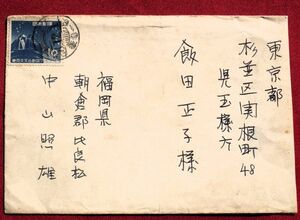 東京都
杉並区関根町48
児玉様方
飯田正子様
福岡県
朝倉郡比良松
中山照雄